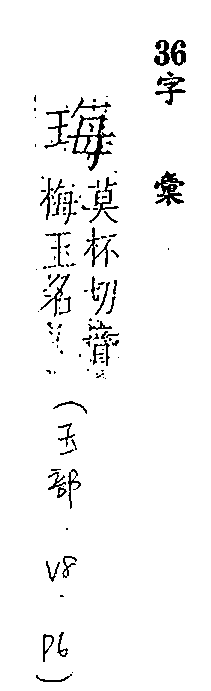 36
字彙
莫杯切音
梅玉名
(玉部.V8.P6)